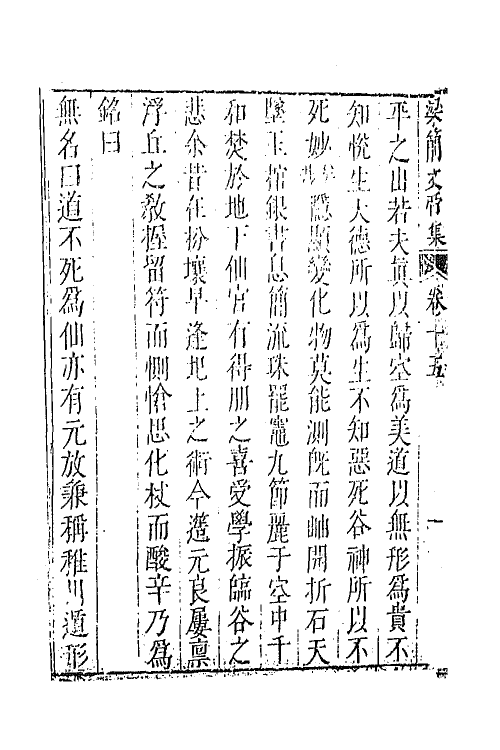 梁簡文帝集 卷十五 一
平之出若夫眞以歸空爲美道以無形爲貴不
知悅生大德所以爲生不知惡死谷神所以不
死妙 隱顯變化物莫能測旣而岫開折石天
墜玉棺銀書息簡流珠罷竈九節麗于空中千
和焚於地下仙官有得朋之喜受學振臨谷之
悲余昔在枌壤早逢圯上之術今濫元良屢禀
浮丘之敎握留符而惻愴思化杖而酸辛乃爲
銘曰
無名曰道不死爲仙亦有元放兼稱稚川遁形